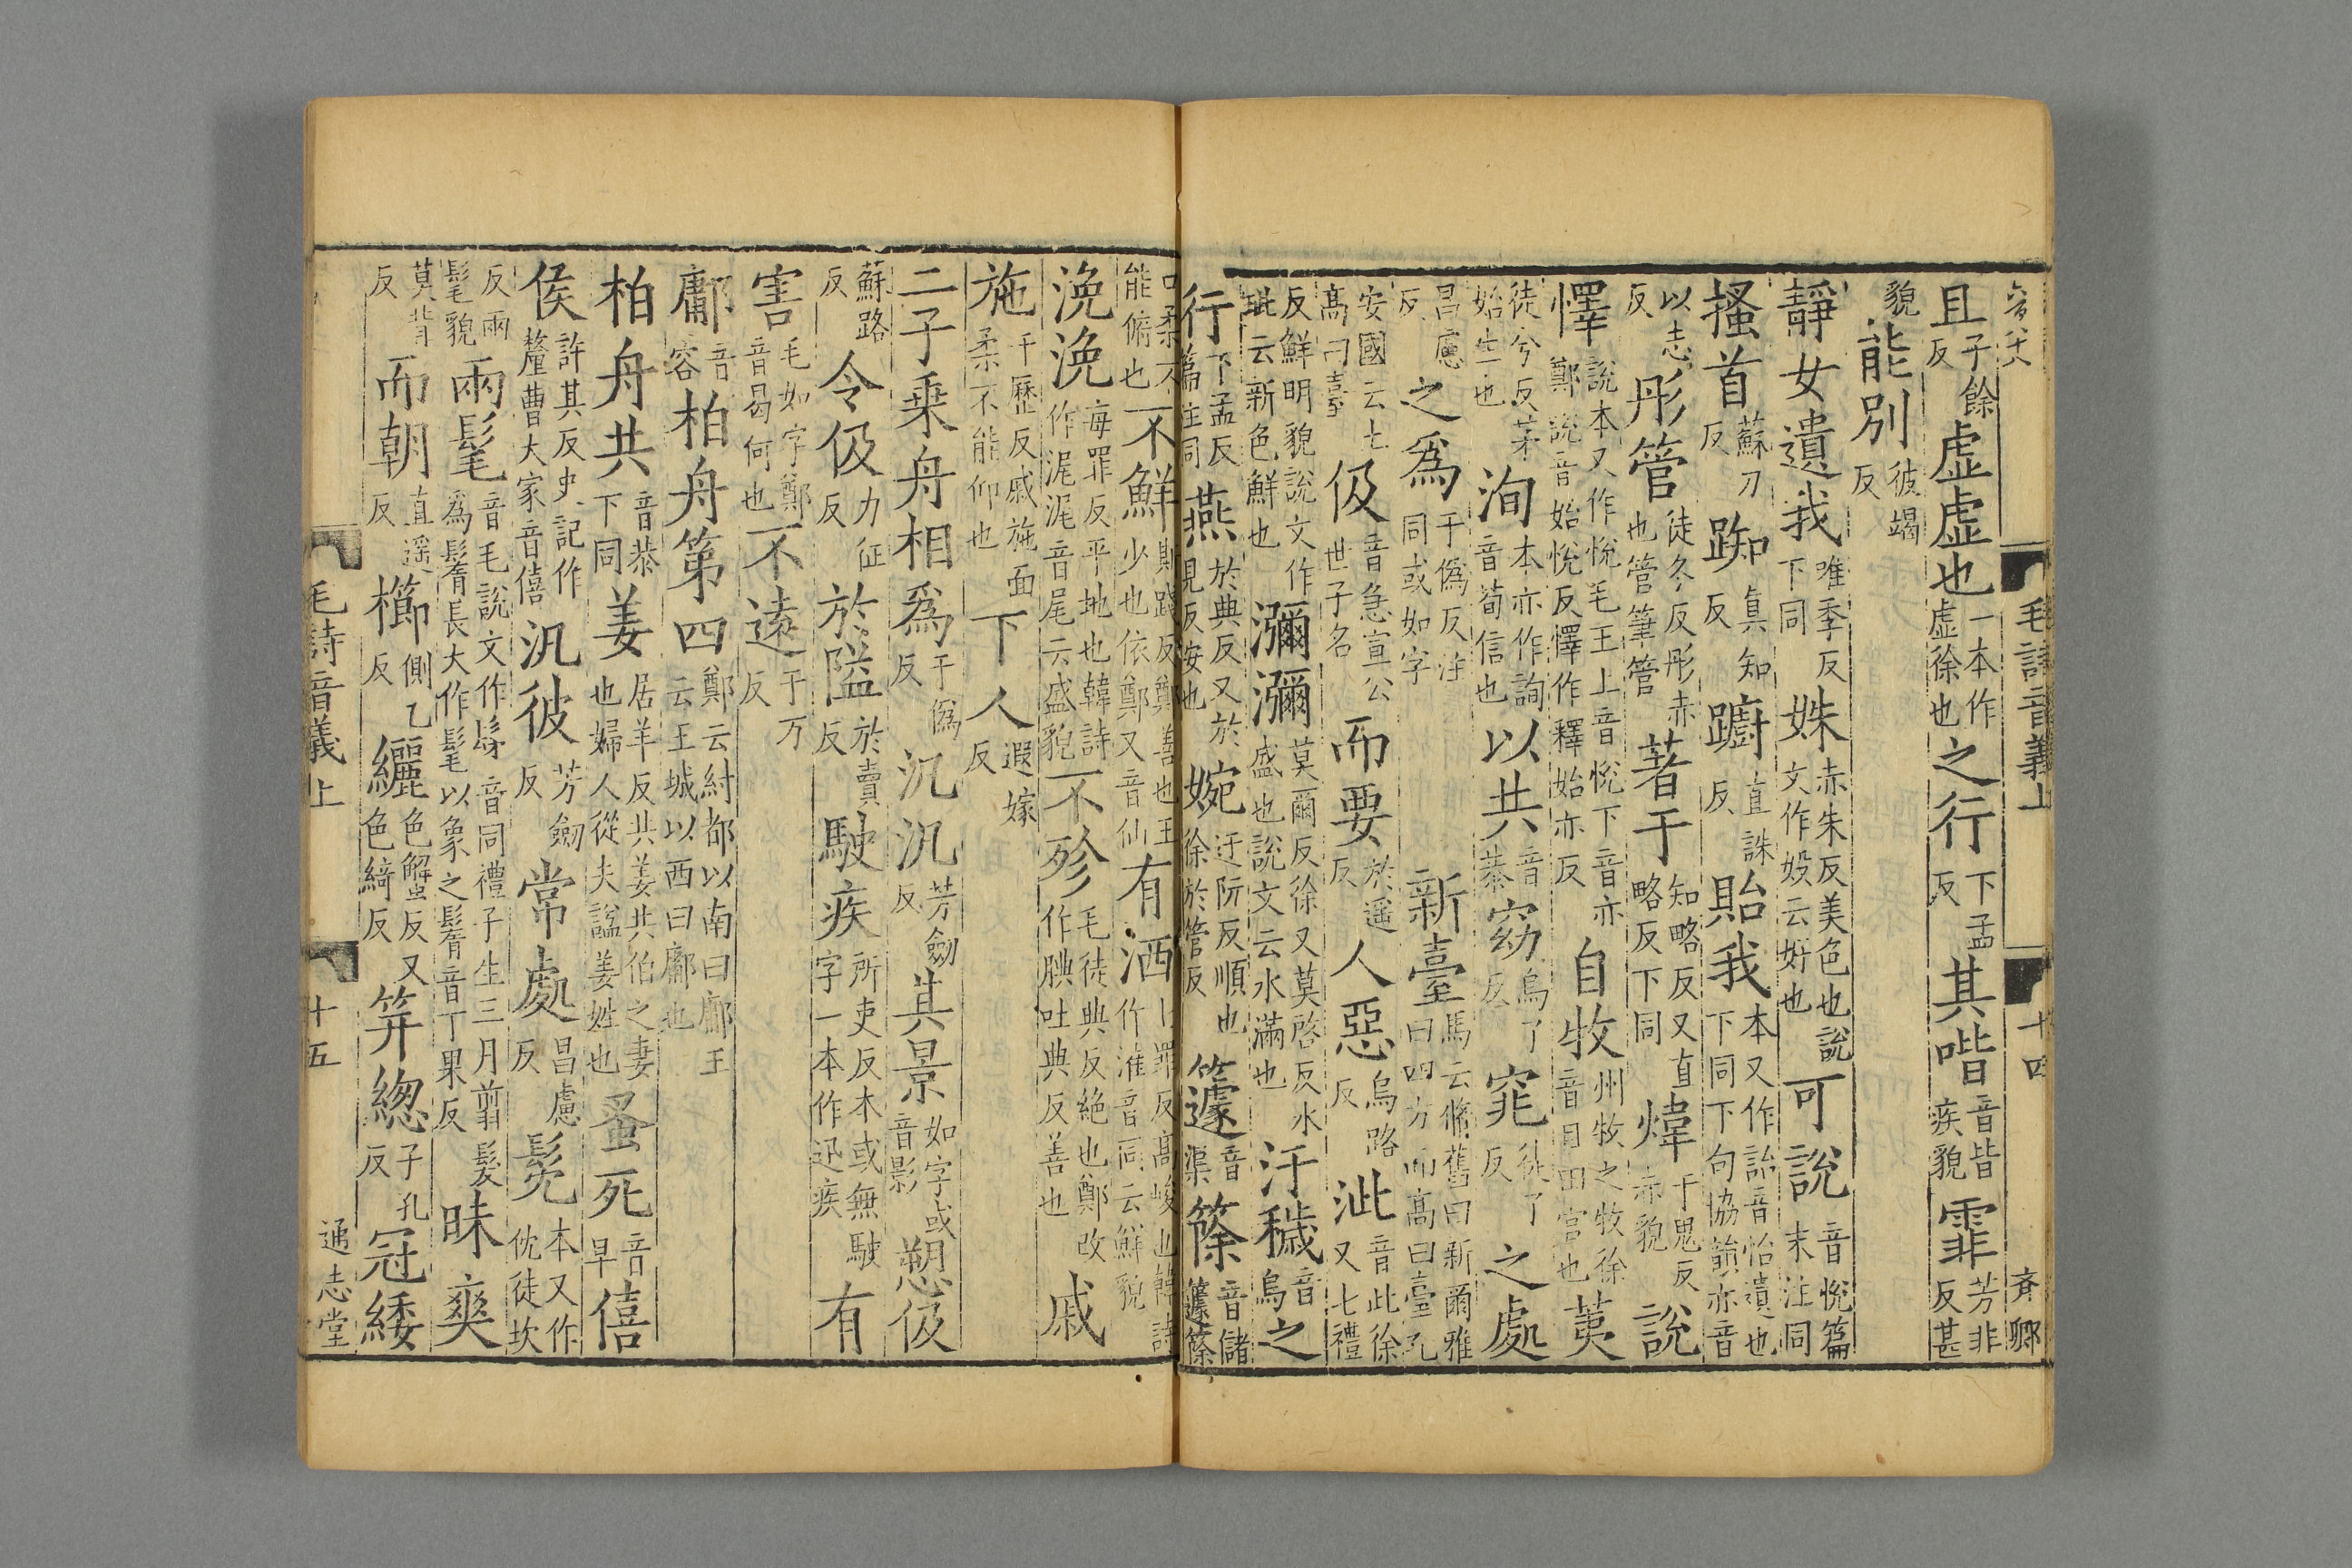 毛詩音義上 十四 斉卿
且子餘反虛虛也一本作虛徐也之行下孟反其喈音皆疾貌霏芳非反甚
貌能別彼竭反
靜女遺我唯季反下同姝赤朱反美色也說文作㛠云好也可說音悅篇末注同
搔首蘇刀反踟直知反躕直誅反貽我本又作詒音怡遺也下同下句協韻亦音
以志反彤管徒冬反彤赤也管筆管著于知略反又直略反下同煒于思反赤貌說
懌說本又作悅毛王上音悅下音亦鄭說音始悅反懌作釋始亦反自牧州牧之牧徐音目田官也荑
徒兮反茅始生也洵本亦作詢音荀信也以共音恭窈烏了反窕徒了反之處
昌慮反之爲于僞反注同或如字新臺馬云脩舊曰新爾雅曰四方而高曰臺孔
安國云土高曰臺伋音急宣公世子名而要於遥反人惡烏路反泚音此徐又七禮
反鮮明貌說文作玼云新色鮮也瀰瀰莫爾反徐又莫啓反水盛也說文云水滿也汙穢音烏之
行下孟反篇注同燕於典反又於見反安也婉迂阮反順也徐於管反籧音渠篨音儲籧篨
口柔不能俯也不鮮斯踐反鄭善也王少也依鄭又音仙有洒七罪反高峻也韓詩作漼音同云鮮貌
浼浼每罪反平地也韓詩作浘浘音尾云盛貌不殄毛徒典反絶也鄭改作腆吐典反善也戚
施千歷反戚施面柔不能仰也下人遐嫁反
二子乗舟相爲于僞反汎汎芳劒反其景如字或音影愬伋
蘇路反令伋力征反於隘於賣反駛疾所吏反本或無駛字一本作迅疾有
害毛如字鄭音曷何也不遠于万反
鄘音容柏舟第四鄭云紂都以南曰鄘王云王城以西曰鄘也
柏舟共音恭下同姜居羊反共姜共伯之妻也婦人從夫謚姜姓也蚤死音早僖
侯許其反史記作釐曹大家音僖汎彼芳劒反常處昌慮反髧本又作优徒坎
反兩髦貌兩髦音毛說文作髳音同禮子生三月翦髮爲鬌長大作髦以象之鬌音丁果反昧爽
莫背反而朝直遥反櫛側乙反纚色蟹反又色綺反笄緫子孔反冠緌
毛詩音義上 十五 通志堂